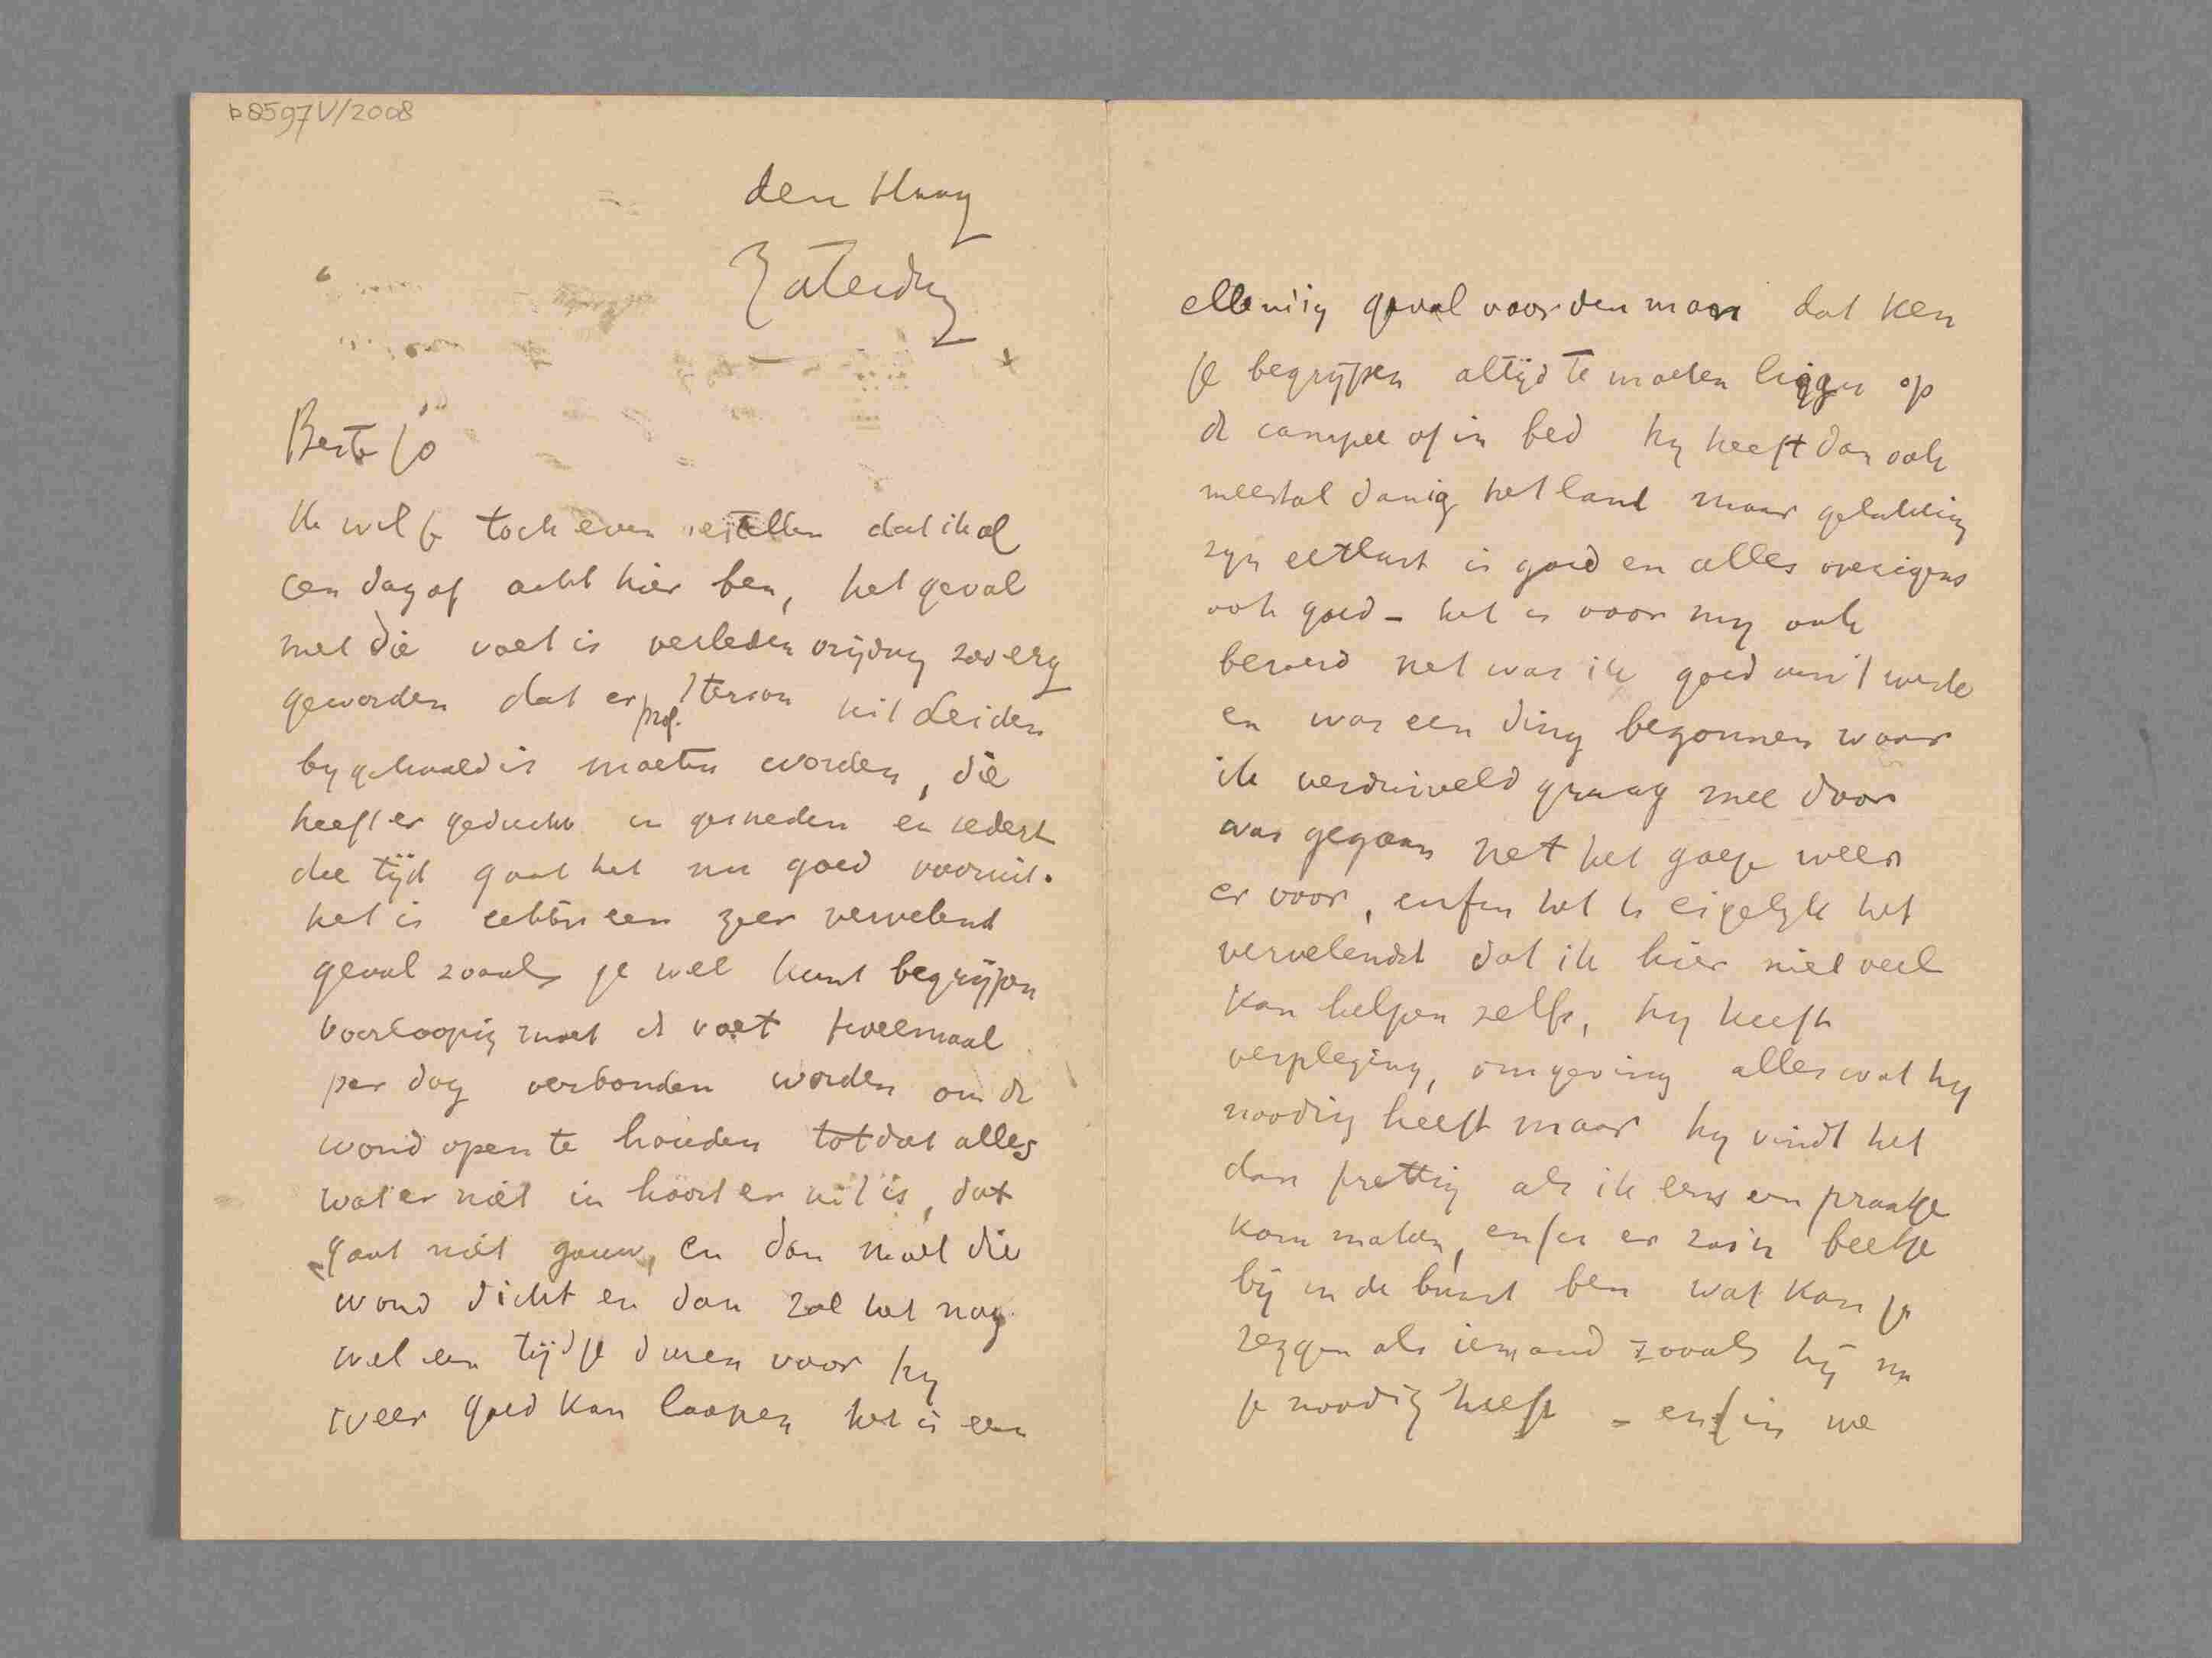 b8597 V/2008
den Haag
Zaterdag
Beste Jo
Ik wil je toch even vertellen dat ik al
een dag of acht hier ben, het geval
met die voet is verleden vrijdag zoo erg
geworden dat er prof. Iterson uit Leiden
bygehaald is moeten worden, die
heeft er geducht in gesneden en sedert
die tijd gaat het nu goed vooruit.
het is echter een zeer vervelend
geval zooals je wel kunt begrijpen
voorloopig moet de voet tweemaal
per dag verbonden worden om de
wond open te houden totdat alles
wat er niet in hoort er uit is, dat
gaat niet gauw, en dan moet die
wond dicht en dan zal het nog
wel een tijdje duren voor hy
weer goed kan loopen het is een
ellendig geval voor den man dat ken
je begrijpen altijd te moeten liggen op
de canapee of in bed hy heeft dan ook
meestal danig het land maar gelukkig
zyn eetlust is goed en alles overigens
ook goed - het is voor my ook
beroerd net was ik goed aan 't werk
en was een ding begonnen waar
ik verduiveld graag mee door
was gegaan net het goeje weer
er voor, enfin het is eigelyk het
vervelendst dat ik hier niet veel
kan helpen zelfs, hy heeft
verpleging, omgeving alles wat hy
noodig heeft maar hy vindt het
dan prettig als ik eens een praatje
kom maken, enfin er zoo'n beetje
bij in de buurt ben wat kan je
zeggen als iemand zooals hij nu
je noodig heeft - enfin we